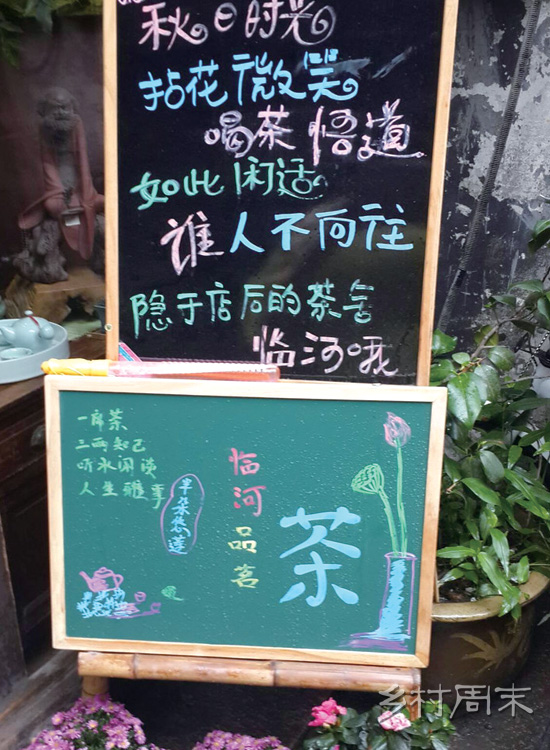 秋日时光
拈花微笑
喝茶悟道
如此闲适
谁人不向往
隐于店后的茶舍
临河哦
一席茶
三两知己
听水闲谈
人生雅事
半朵悠莲
临河品茗
茶
乡村周末